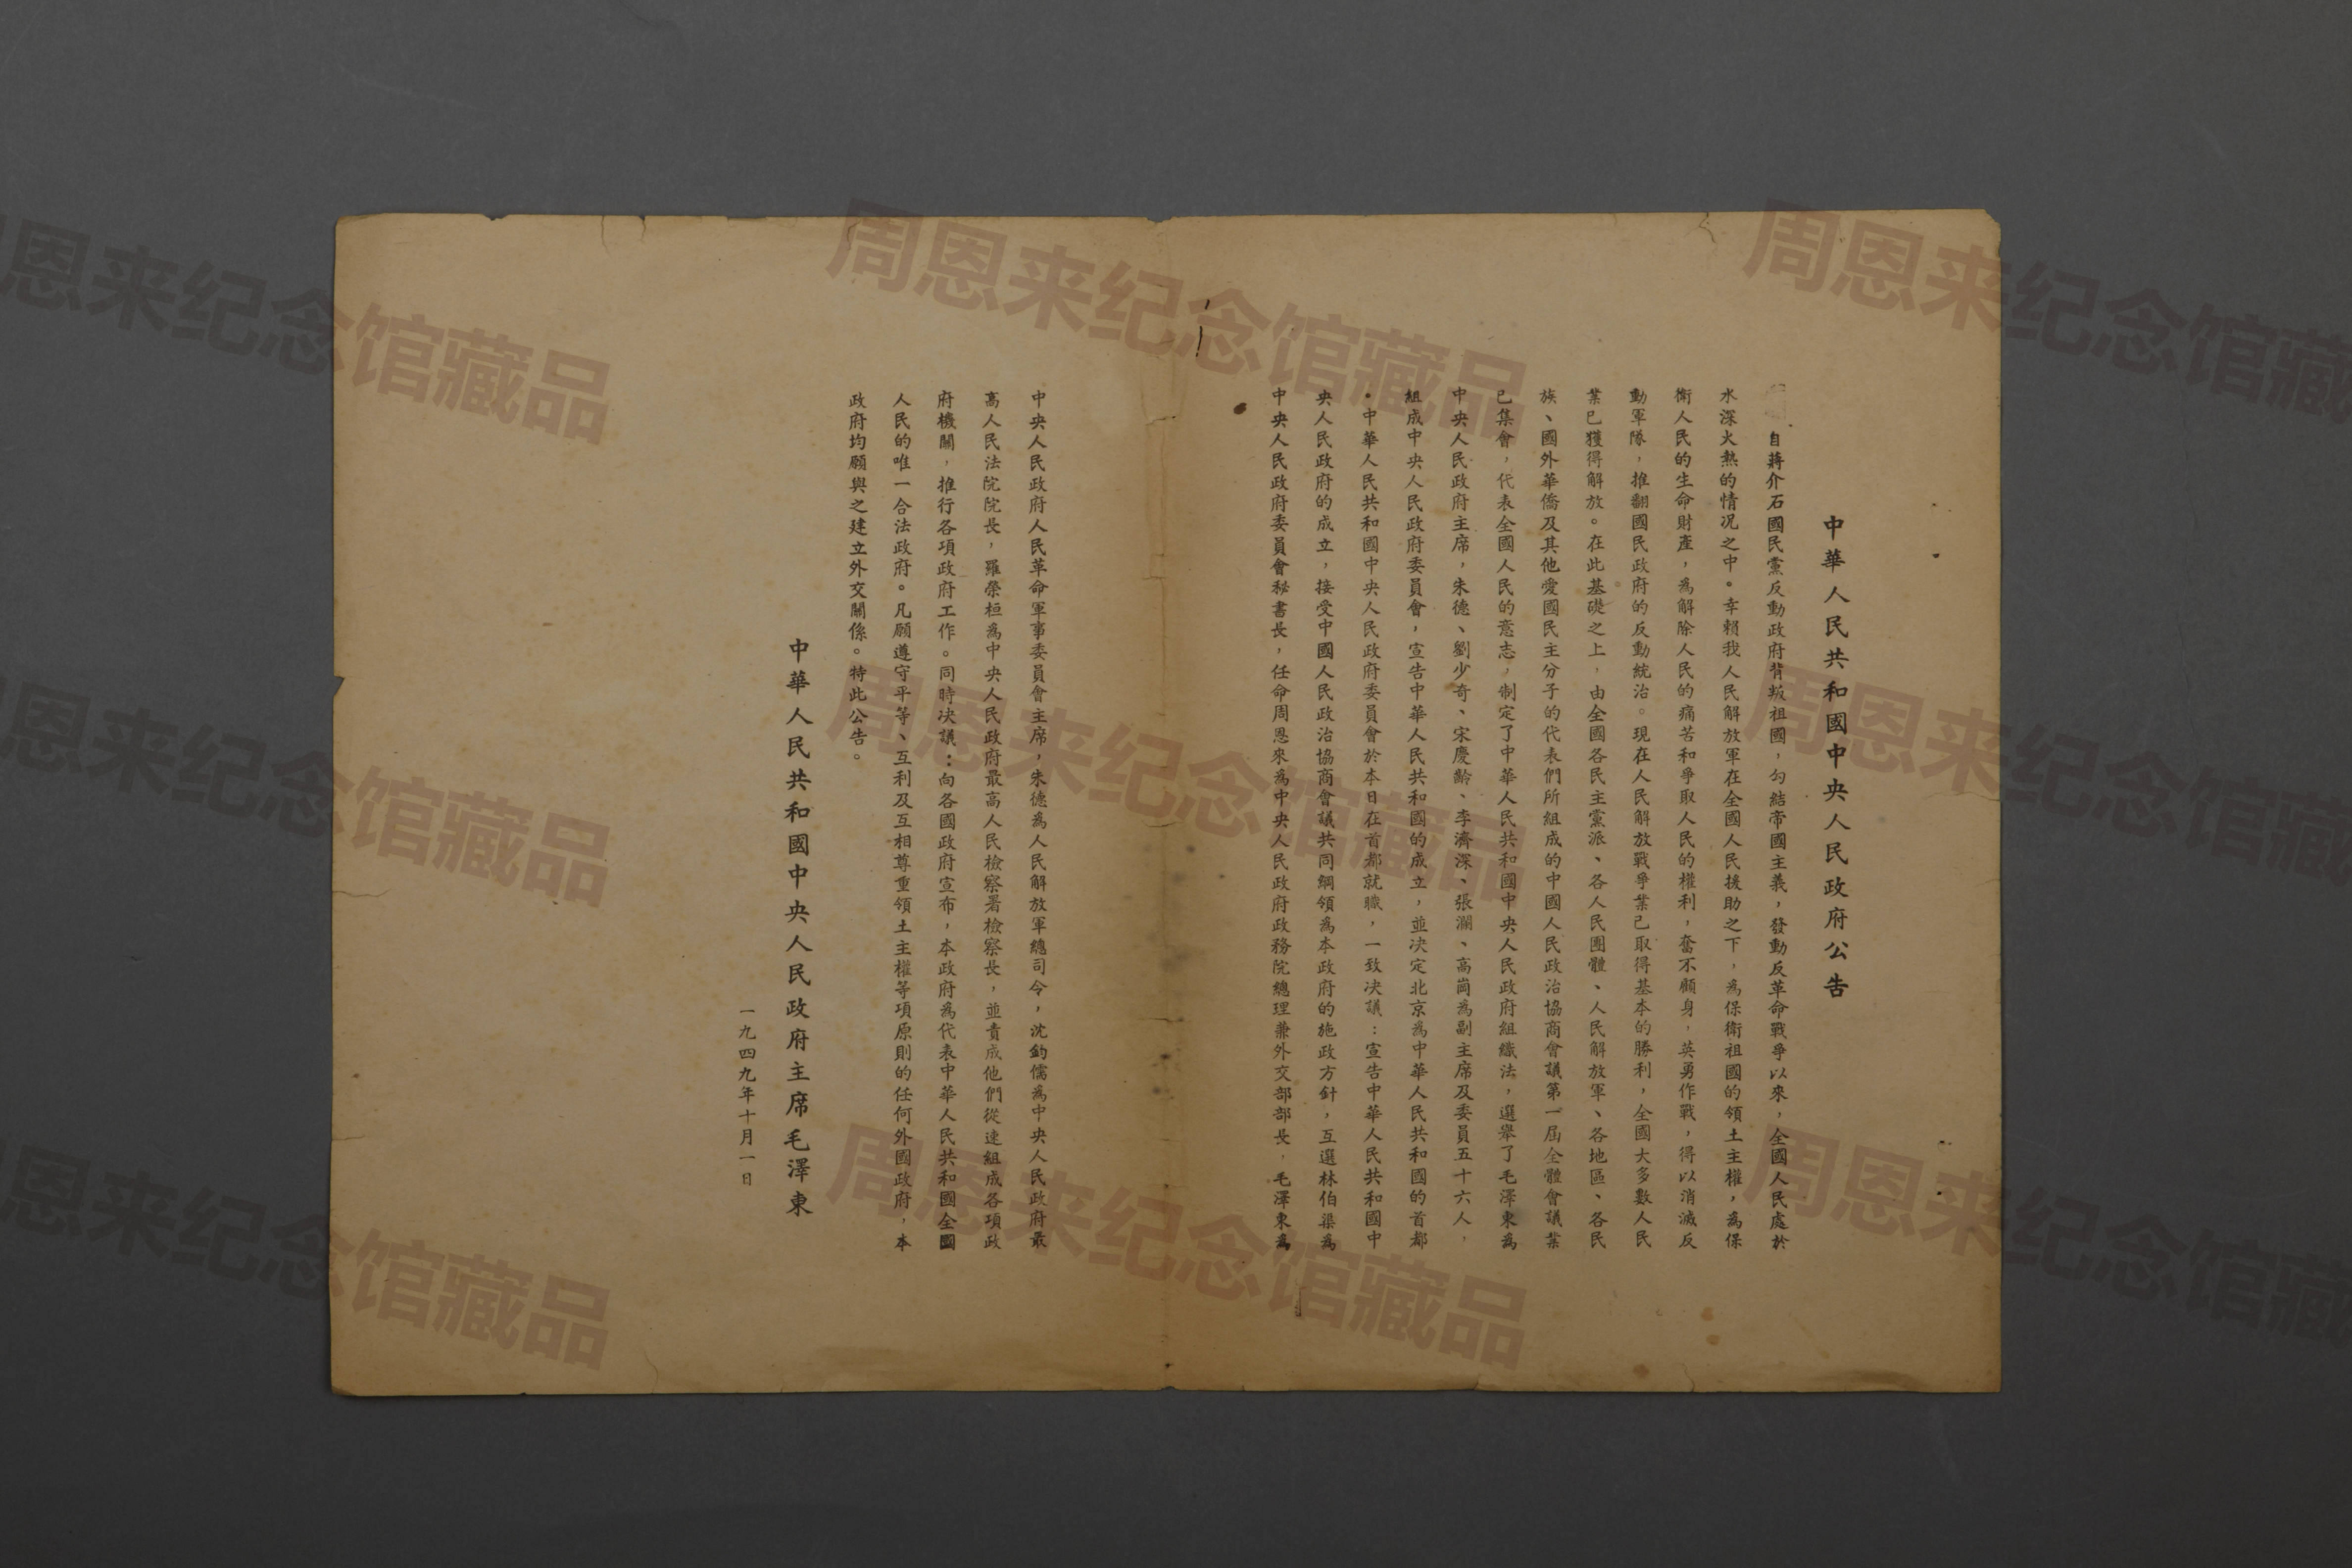 中華人民共和國中央人民政府公告
自蔣介石國民黨反動政府背叛祖國，勾結帝國主義，發動反革命戰爭以來，全國人民處於
水深火熱的情况之中。幸賴我人民解放軍在全國人民援助之下，為保衛祖國的領土主權，為保
衛人民的生命財產，為解除人民的痛苦和爭取人民的權利，奮不顧身，英勇作戰，得以消滅反
動軍隊，推翻國民政府的反動統治。現在人民解放戰爭業已取得基本的勝利，全國大多數人民
業已獲得解放。在此基礎之上，由全國各民主黨派、各人民團體、人民解放軍、各地區、各民
族、國外華僑及其他愛國民主分子的代表們所組成的中國人民政治協商會議第一屆全體會議業
已集會，代表全國人民的意志，制定了中華人民共和國中央人民政府組織法，選舉了毛澤東為
中央人民政府主席，朱德、劉少奇、宋慶齡、李濟深、張瀾、高崗為副主席及委員五十六人，
組成中央人民政府委員會，宣告中華人民共和國的成立，並决定北京為中華人民共和國的首都
。中華人民共和國中央人民政府委員會於本日在首都就職，一致决議：宣告中華人民共和國中
央人民政府的成立，接受中國人民政治協商會議共同綱領為本政府的施政方針，互選林伯渠為
中央人民政府委員會秘書長，任命周恩來為中央人民政府政務院總理兼外交部部長，毛澤東為
中央人民政府人民革命軍事委員會主席，朱德為人民解放軍總司令，沈鈞儒為中央人民政府最
高人民法院院長，羅榮桓為中央人民政府最高人民檢察署檢察長，並責成他們從速組成各項政
府機關，推行各項政府工作。同時决議：向各國政府宣布，本政府為代表中華人民共和國全國
人民的唯一合法政府。凡願遵守平等、互利及互相尊重領土主權等項原則的任何外國政府，本
政府均願與之建立外交關係。特此公告。
中華人民共和國中央人民政府主席毛澤東
一九四九年十月一日
周恩来纪念馆藏品
周恩来纪念馆藏品
周恩来纪念馆藏品
周恩来纪念馆藏品
周恩来纪念馆藏品
周恩来纪念馆藏品
周恩来纪念馆藏品
周恩来纪念馆藏品
周恩来纪念馆藏品